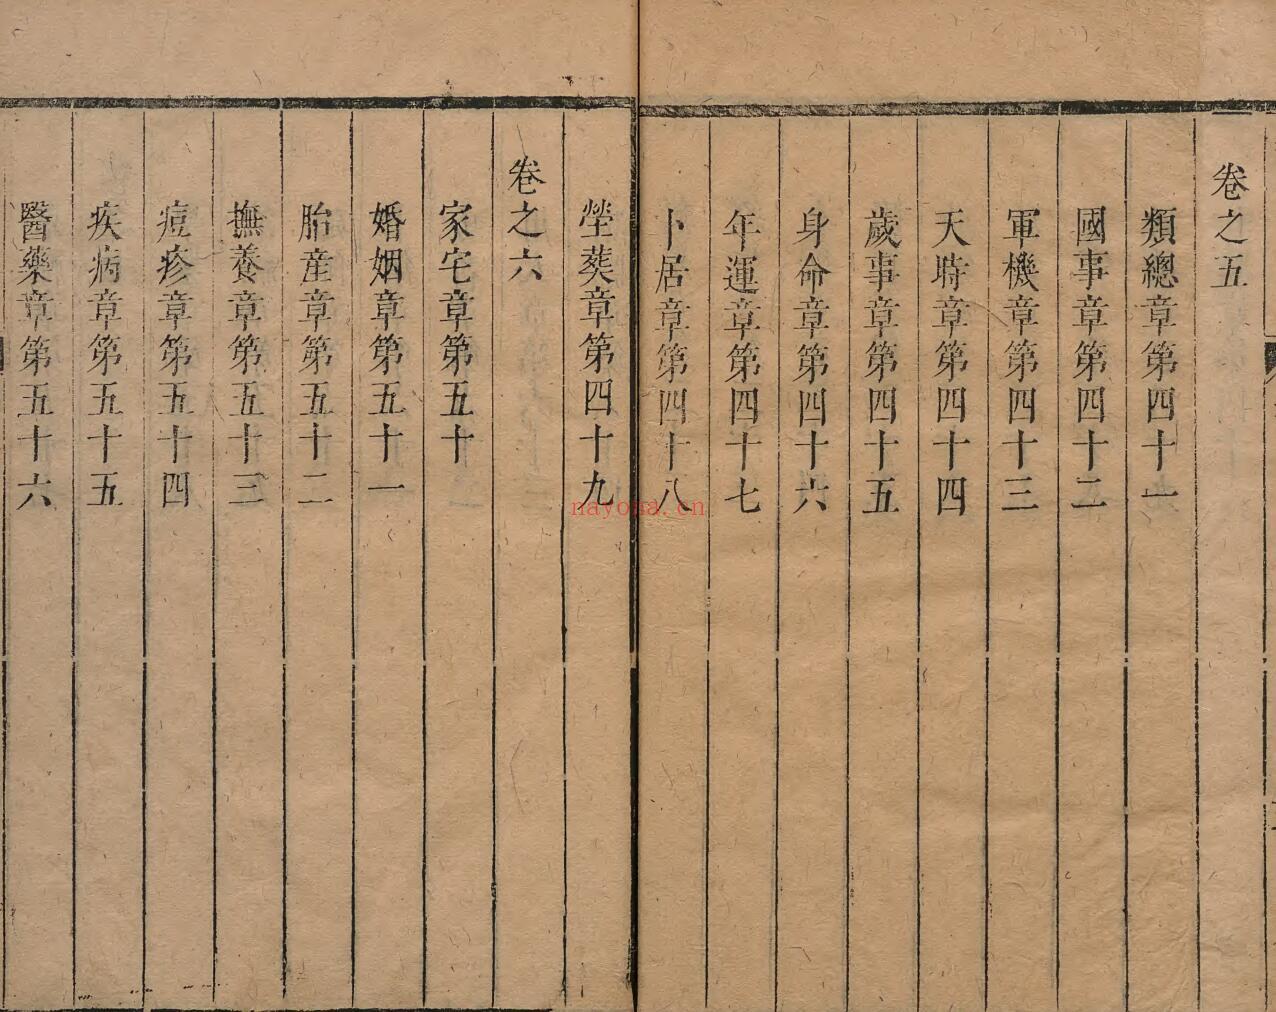 卷之五
類總章第四十一
國事章第四十二
軍機章第四十三
天時章第四十四
歲事章第四十五
身命章第四十六
年運章第四十七
卜居章第四十八
塋葬章第四十九
卷之六
家宅章第五十
婚姻章第五十一
胎產章第五十二
撫養章第五十三
痘疹章第五十四
疾病章第五十五
醫藥章第五十六
nayona.cn